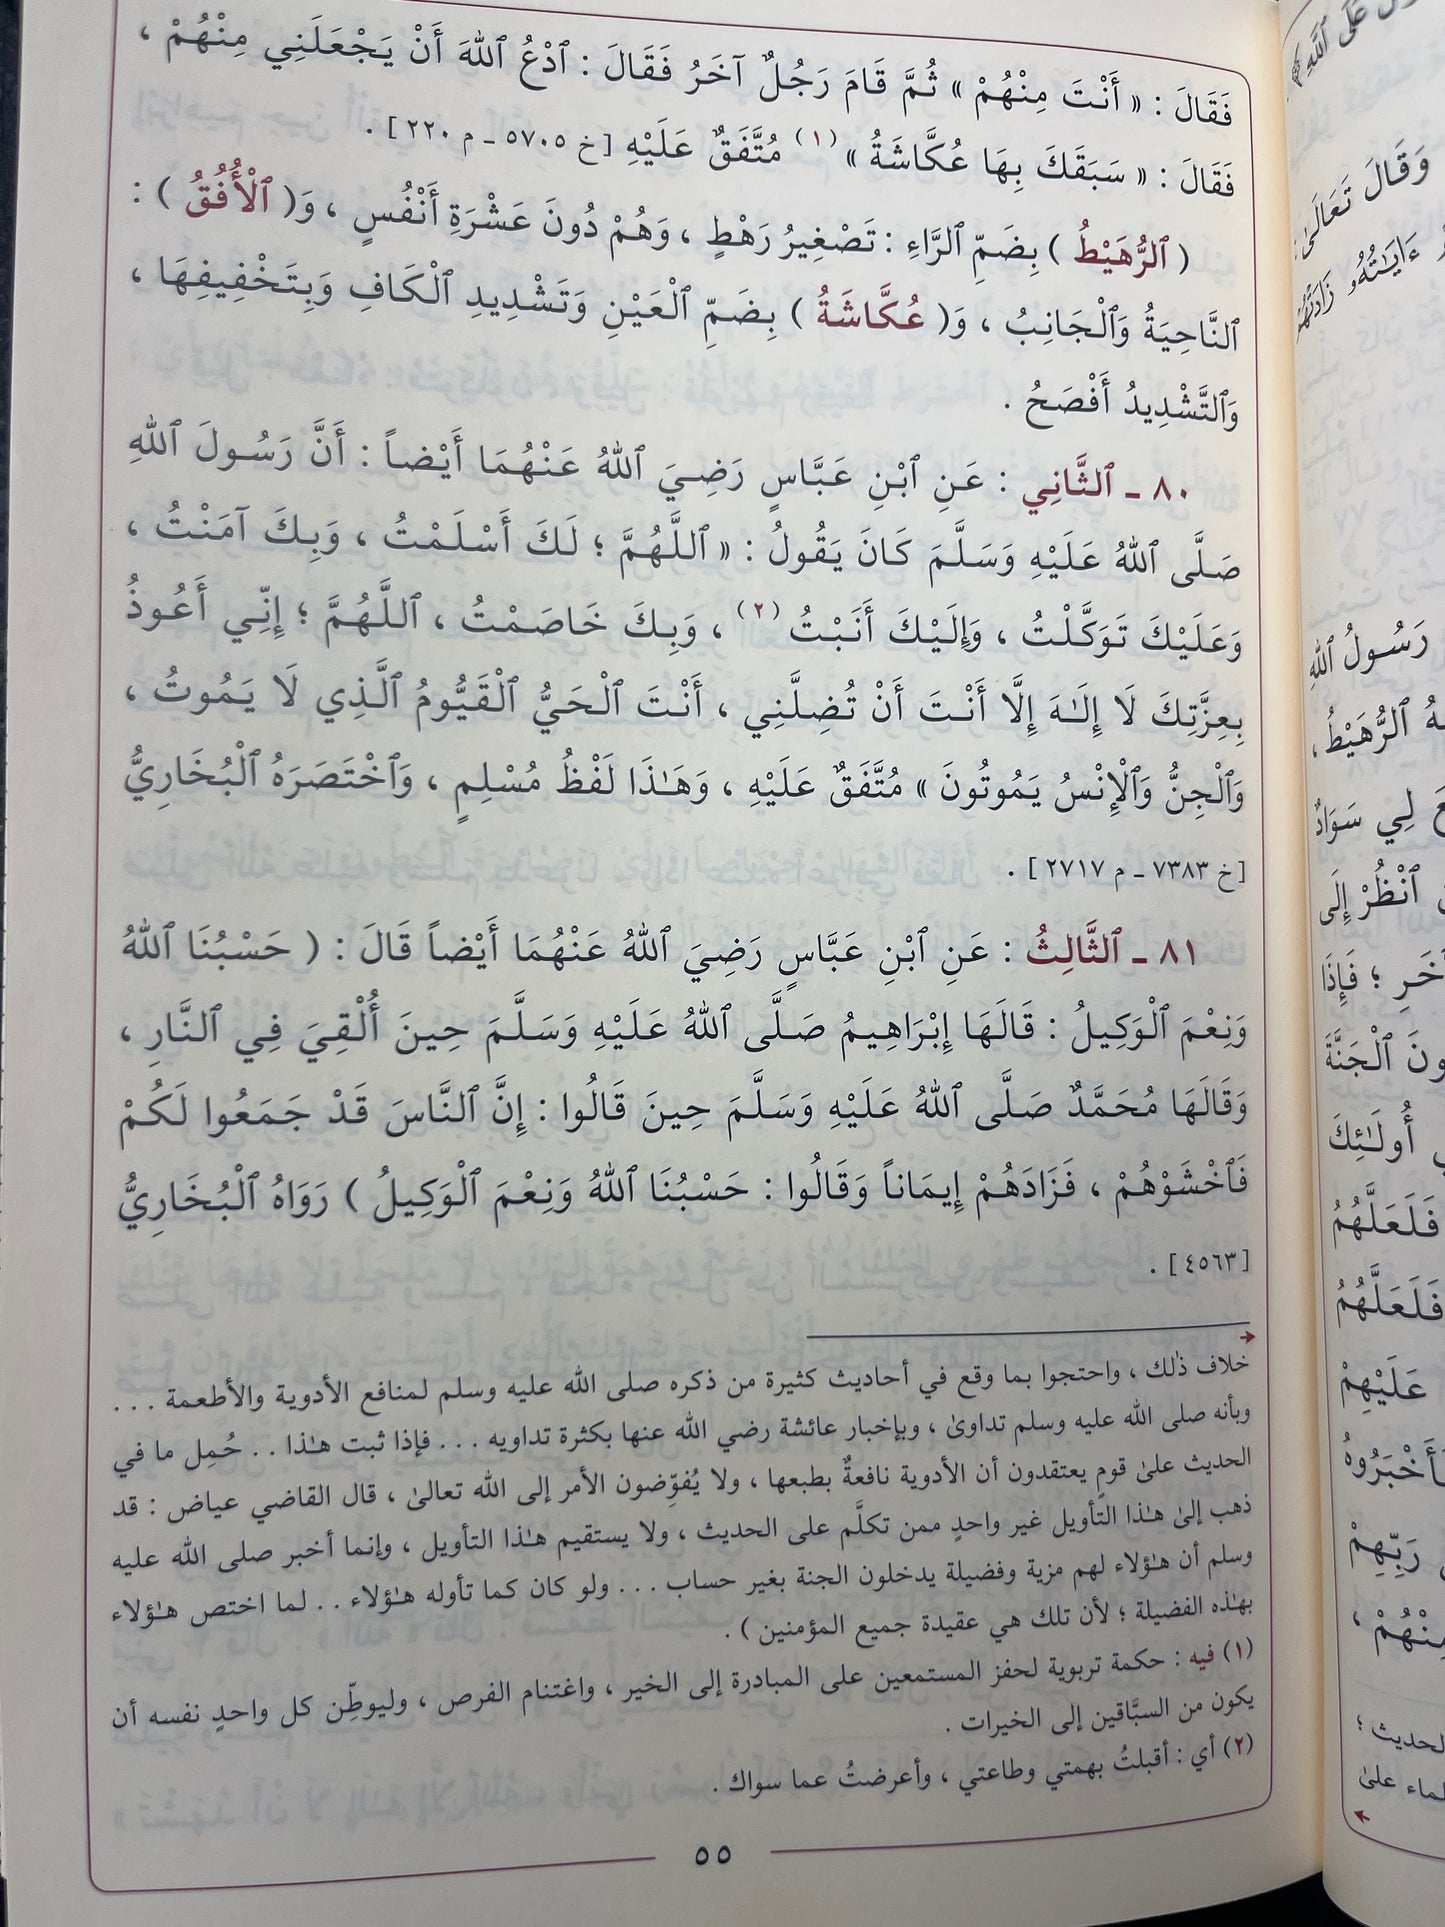 فَقَالَ : « أَنْتَ مِنْهُمْ » ثُمَّ قَامَ رَجُلٌ آخَرُ فَقَالَ : ٱدْعُ ٱللهَ أَنْ يَجْعَلَنِي مِنْهُمْ ،
فَقَالَ : « سَبَقَكَ بِهَا عُكَّاشَةُ »(١) مُتَّفَقٌ عَلَيْهِ [خ ٥٧٠٥ ـ م ٢٢٠] .
( ٱلرُّهَيْطُ ) بِضَمِّ ٱلرَّاءِ : تَصْغِيرُ رَهْطٍ ، وَهُمْ دُونَ عَشْرَةِ أَنْفُسٍ ، وَ( ٱلْأُفُقُ ) :
ٱلنَّاحِيَةُ وَٱلْجَانِبُ ، وَ( عُكَّاشَةُ ) بِضَمِّ ٱلْعَيْنِ وَتَشْدِيدِ ٱلْكَافِ وَبِتَخْفِيفِهَا ،
وَٱلتَّشْدِيدُ أَفْصَحُ .
٨٠ ـ ٱلثَّانِي : عَنِ ٱبْنِ عَبَّاسٍ رَضِيَ ٱللهُ عَنْهُمَا أَيْضاً : أَنَّ رَسُولَ ٱللهِ
صَلَّى ٱللهُ عَلَيْهِ وَسَلَّمَ كَانَ يَقُولُ : « ٱللَّهُمَّ ؛ لَكَ أَسْلَمْتُ ، وَبِكَ آمَنْتُ ،
وَعَلَيْكَ تَوَكَّلْتُ ، وَإِلَيْكَ أَنَبْتُ(٢) ، وَبِكَ خَاصَمْتُ ، ٱللَّهُمَّ ؛ إِنِّي أَعُوذُ
بِعِزَّتِكَ لَا إِلَـٰهَ إِلَّا أَنْتَ أَنْ تُضِلَّنِي ، أَنْتَ ٱلْحَيُّ ٱلْقَيُّومُ ٱلَّذِي لَا يَمُوتُ ،
وَٱلْجِنُّ وَٱلْإِنْسُ يَمُوتُونَ » مُتَّفَقٌ عَلَيْهِ ، وَهَـٰذَا لَفْظُ مُسْلِمٍ ، وَٱخْتَصَرَهُ ٱلْبُخَارِيُّ
[خ ٧٣٨٣ ـ م ٢٧١٧] .
٨١ ـ ٱلثَّالِثُ : عَنِ ٱبْنِ عَبَّاسٍ رَضِيَ ٱللهُ عَنْهُمَا أَيْضاً قَالَ : ( حَسْبُنَا ٱللهُ
وَنِعْمَ ٱلْوَكِيلُ : قَالَهَا إِبْرَاهِيمُ صَلَّى ٱللهُ عَلَيْهِ وَسَلَّمَ حِينَ أُلْقِيَ فِي ٱلنَّارِ ،
وَقَالَهَا مُحَمَّدٌ صَلَّى ٱللهُ عَلَيْهِ وَسَلَّمَ حِينَ قَالُوا : إِنَّ ٱلنَّاسَ قَدْ جَمَعُوا لَكُمْ
فَٱخْشَوْهُمْ ، فَزَادَهُمْ إِيمَاناً وَقَالُوا : حَسْبُنَا ٱللهُ وَنِعْمَ ٱلْوَكِيلُ ) رَوَاهُ ٱلْبُخَارِيُّ
[٤٥٦٣] .
خلاف ذٰلك ، واحتجوا بما وقع في أحاديث كثيرة من ذكره صلى الله عليه وسلم لمنافع الأدوية والأطعمة . . .
وبأنه صلى الله عليه وسلم تداوىٰ ، وبإخبار عائشة رضي الله عنها بكثرة تداويه . . . فإذا ثبت هـٰذا . . حُمِل ما في
الحديث علىٰ قومٍ يعتقدون أن الأدوية نافعةٌ بطبعها ، ولا يُفوِّضون الأمر إلى الله تعالىٰ ، قال القاضي عياض : قد
ذهب إلىٰ هـٰذا التأويل غير واحدٍ ممن تكلَّم على الحديث ، ولا يستقيم هـٰذا التأويل ، وإنما أخبر صلى الله عليه
وسلم أن هـٰؤلاء لهم مزية وفضيلة يدخلون الجنة بغير حساب . . . ولو كان كما تأوله هـٰؤلاء . . لما اختص هـٰؤلاء
بهـٰذه الفضيلة ؛ لأن تلك هي عقيدة جميع المؤمنين ) .
(١) فيه : حكمة تربوية لحفز المستمعين على المبادرة إلى الخير ، واغتنام الفرص ، وليوطِّن كل واحدٍ نفسه أن
يكون من السبَّاقين إلى الخيرات .
(٢) أي : أقبلتُ بهمتي وطاعتي ، وأعرضتُ عما سواك .
٥٥
وَقَالَ تَعَالَىٰ
ءَايَـٰتُهُۥ زَادَتْهُمْ
رَسُولُ ٱللهِ
ٱلرُّهَيْطُ ،
لِي سَوَادٌ
ٱنْظُرْ إِلَى
؛ فَإِذَا
ٱلْجَنَّةَ
أُولَـٰئِكَ
فَلَعَلَّهُمُ
فَلَعَلَّهُمُ
عَلَيْهِمْ
رَبِّهِمْ
مِنْهُمْ ،
الحديث ؛
علىٰ